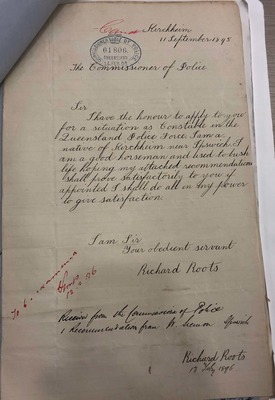 Kirchheim
11 September 1895
01806
The Commissioner of Police
Sir
I have the honour to apply to you
for a situation as Constable in the
Queensland Police Force. I am a
native of Kirchheim near Ipswich. I
am a good horseman and used to bush
life hoping my attached recommendation
shall prove satisfactorily to you if
appointed I shall do all in my power
to give satisfaction.
I am Sir
Your obedient servant
Richard Roots
Receive from the Commissioner of Police
1 Recommendation from Ipswich
Richard Roots
12 July 1896